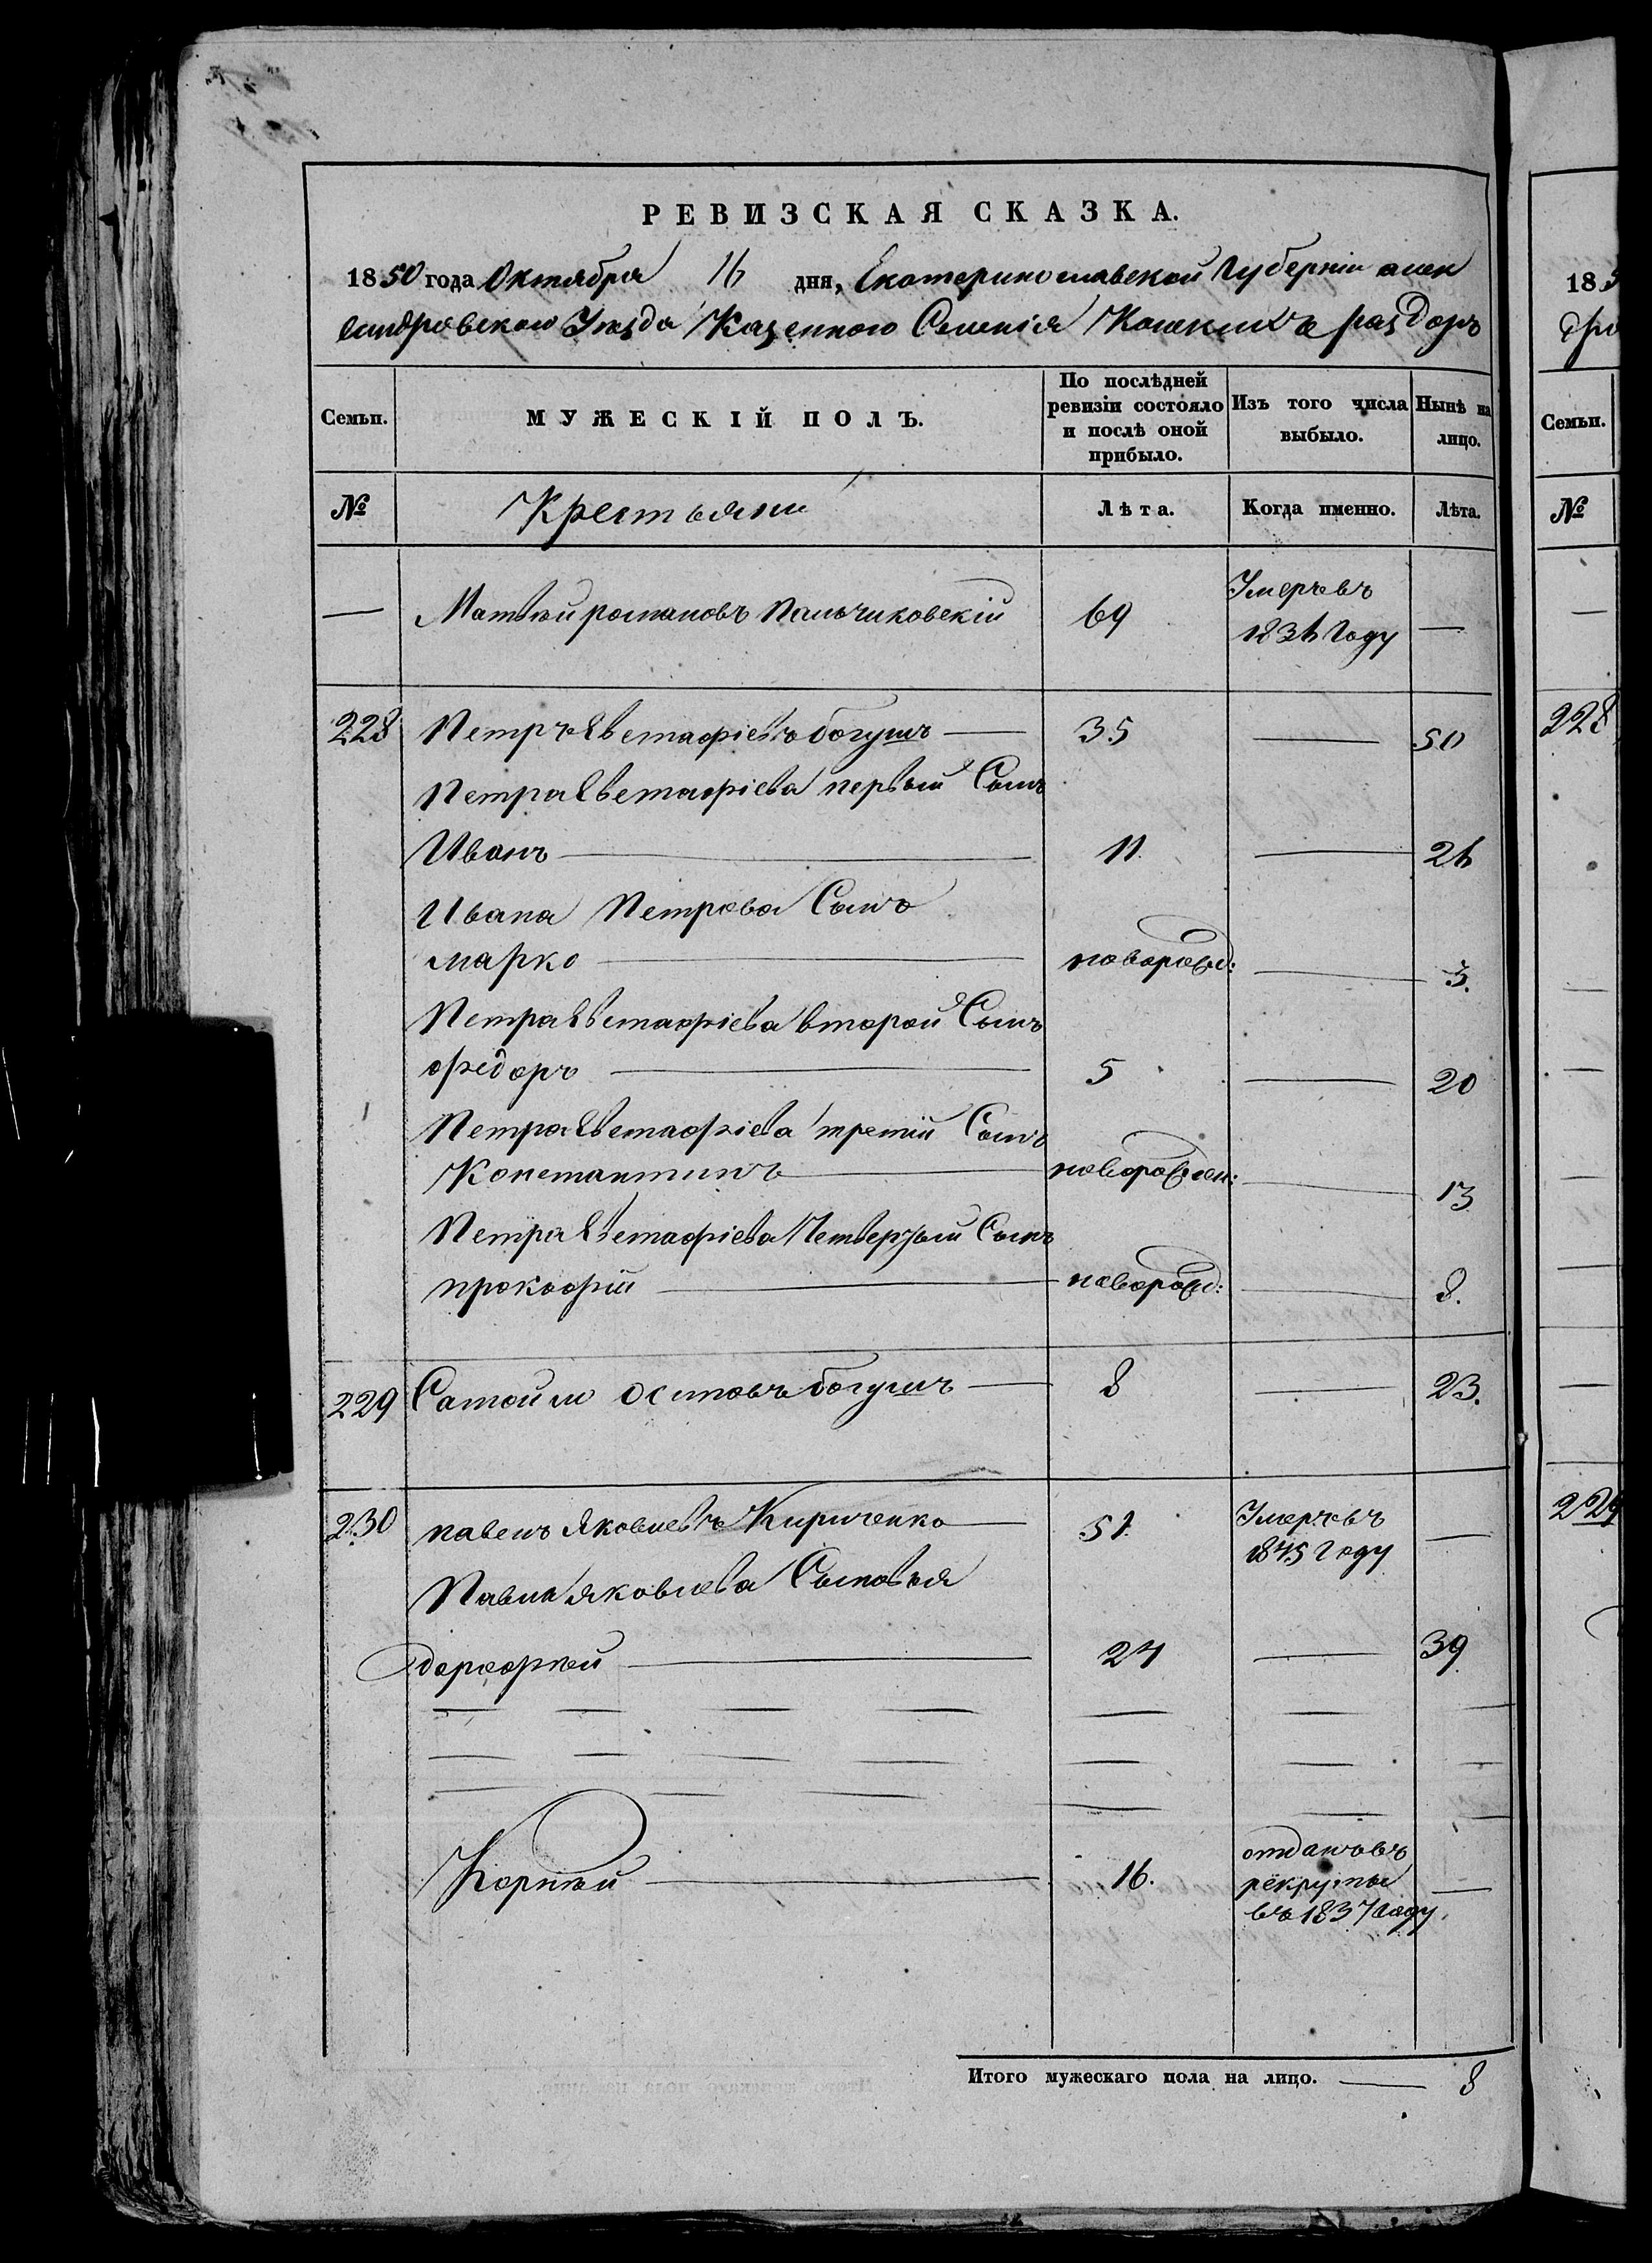 РЕВИЗСКАЯ СКАЗКА.
1850 года Октября 16 дня, Екатеринославской Губерніи алек
сандровскаго Уѣзда Казеннаго Селенія Кошкиныхъ раздоръ
Семьи.
МУЖЕСКІЙ ПОЛЪ.
По послѣдней ревизіи состояло и послѣ оной прибыло.
Изъ того числа выбыло.
Нынѣ на лицо.
№ Крестьяни Лѣта. Когда именно. Лѣта.
— Матвѣй романовъ Пальчиковскій 69 Умеръ въ
1836 Году —
228 Петръ Евстафіевъ богушъ — 35 — 50
Петра Евстафіева первый Сынъ
Иванъ — 11 — 26
Ивана Петрова Сынъ
марко — новорожд: — 3.
Петра Евстафіева второй Сынъ
фёдоръ — 5 — 20
Петра Евстафіева третій Сынъ
Константинъ — новорожден: — 13
Петра Евстафіева Четвертый Сынъ
прокофій — новорожд: — 8.
229 Самойло Осиповъ богушъ — 8 — 23.
230 павелъ Яковлевъ Кириченко — 51. Умеръ въ
1845 Году —
Павла яковлева Сыновья
дорофѣй — 24 — 39
Корнѣй — 16. отданъ въ
рекруты
въ 1837 Году. —
Итого мужескаго пола на лицо. — 8
185
Семьи.
№
228
229